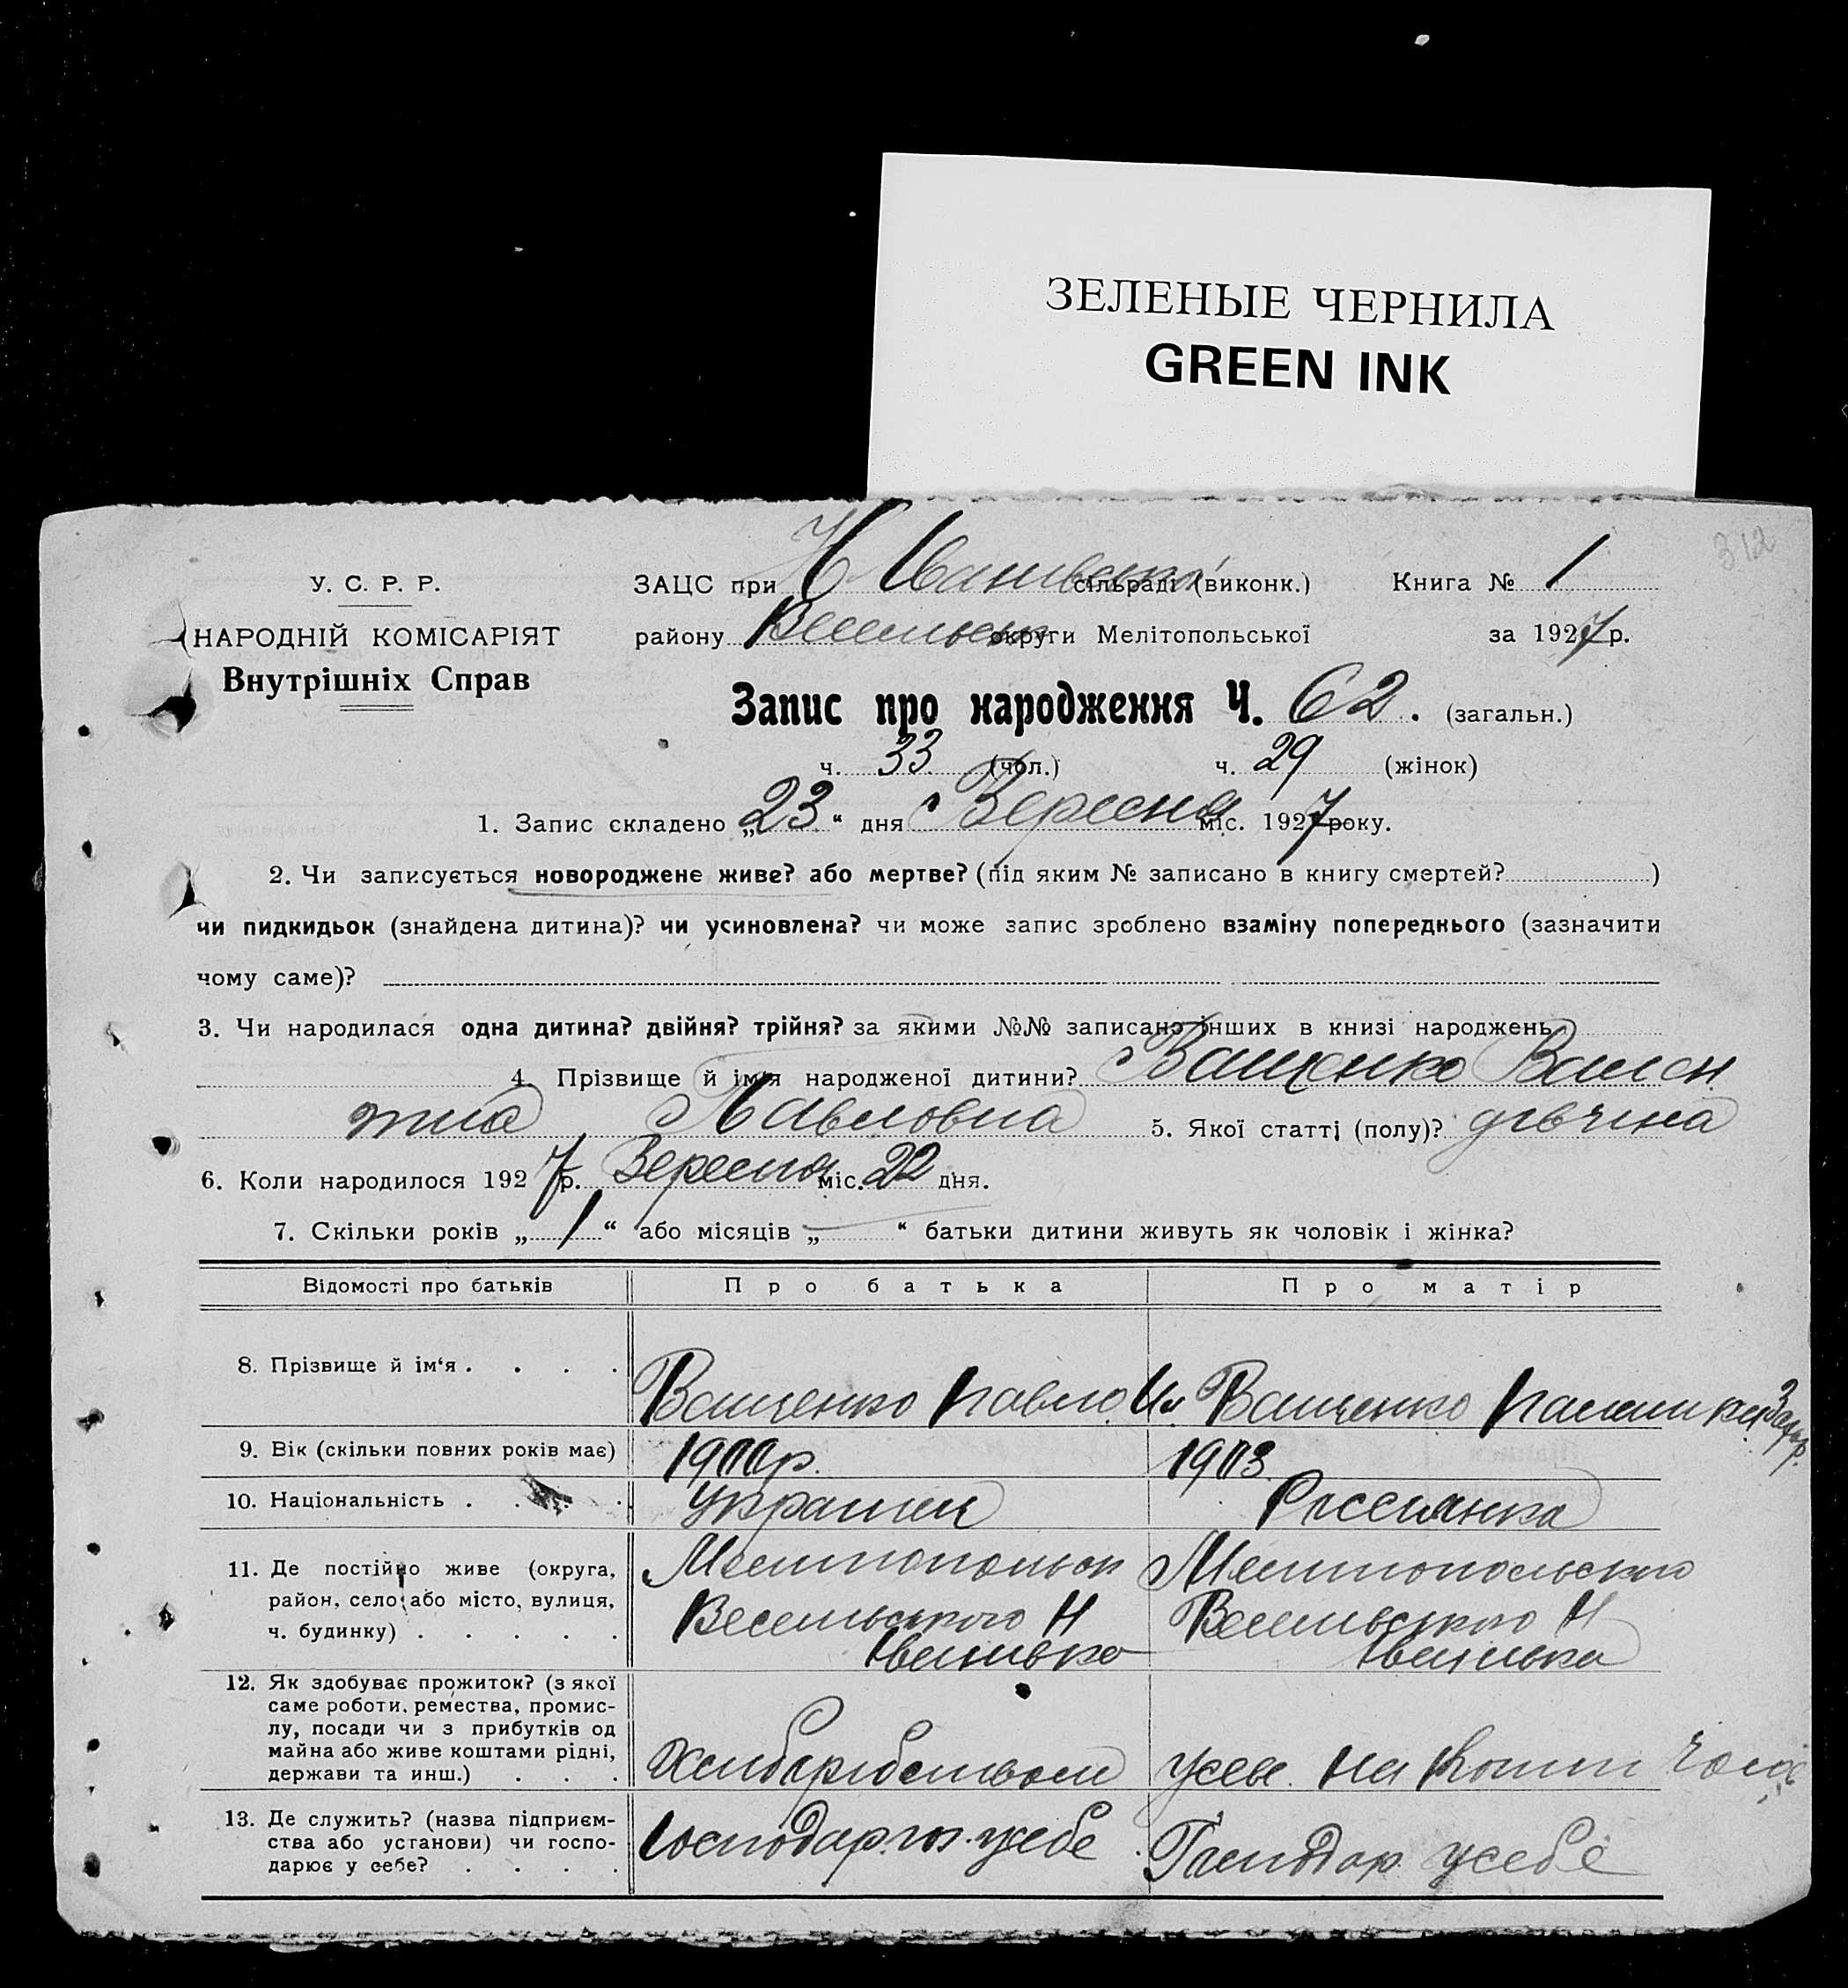 ЗЕЛЕНЫЕ ЧЕРНИЛА
GREEN INK
312
У. С. Р. Р.
НАРОДНІЙ КОМІСАРІЯТ
Внутрішніх Справ
ЗАЦС при Н Іванівській сільраді (виконк.) Книга № 1
району Весельськ округи Мелітопольської за 1927 р.
Запис про народження Ч. 62. (загальн.)
ч. 33 (чол.) ч. 29 (жінок)
1. Запис складено „23“ дня Вересня міс. 1927 року.
2. Чи записується новороджене живе? або мертве? (під яким № записано в книгу смертей? )
чи пидкидьок (знайдена дитина)? чи усиновлена? чи може запис зроблено взаміну попереднього (зазначити
чому саме)?
3. Чи народилася одна дитина? двійня? трійня? за якими №№ записано інших в книзі народжень
4. Прізвище й ім'я народженої дитини? Ващенко Вален
тина Павловна 5. Якої статті (полу)? дівчина
6. Коли народилося 1927 р. Вересня міс. 22 дня.
7. Скільки років „1“ або місяців „—“ батьки дитини живуть як чоловік і жінка?
Відомості про батьків Про батька Про матір
8. Прізвище й ім‘я . . . . Ващенко Павло Ив Ващенко Захар.
9. Вік (скільки повних років має) 1900р. 1903
10. Національність . . . . Украінец Росіянка
11. Де постійно живе (округа,
район, село або місто, вулиця,
ч. будинку) . . . . .
Мелитопольск
Весельського Н
Іванівка
Мелитопольско
Весельського Н
Іванівка
12. Як здобуває прожиток? (з якої
саме роботи, ремества, промис-
лу, посади чи з прибутків од
майна або живе коштами рідні,
держави та инш.) . . .
Хліборобством
на кошти
13. Де служить? (назва підприєм-
ства або установи) чи госпо-
дарює у себе? . . . .
Господар. усебе
Господар усебе